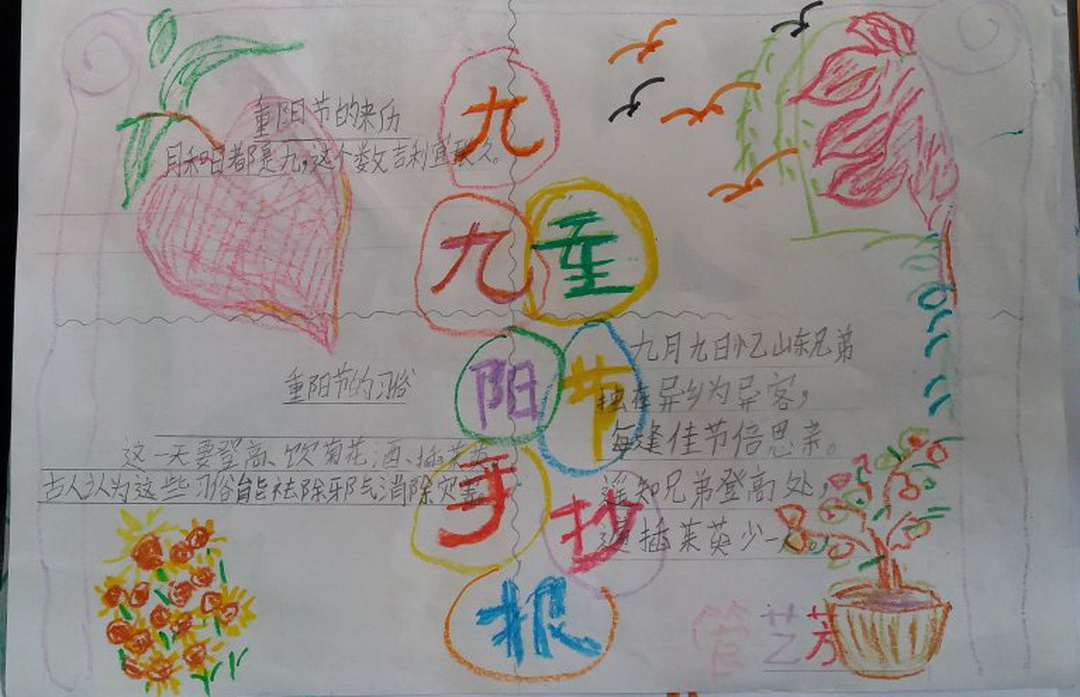 重阳节的来历
月和日都是九,这个数文吉利宜长久。
九
九重
阳节
手抄
报
重阳节的习俗
这一天要登高、饮菊花酒、插茱萸
古人认为这些习俗能祛除邪气消除灾害
九月九日忆山东兄弟
独在异乡为异客,
每逢佳节倍思亲。
遥知兄弟登高处,
遍插茱萸少一人。
管艺芳